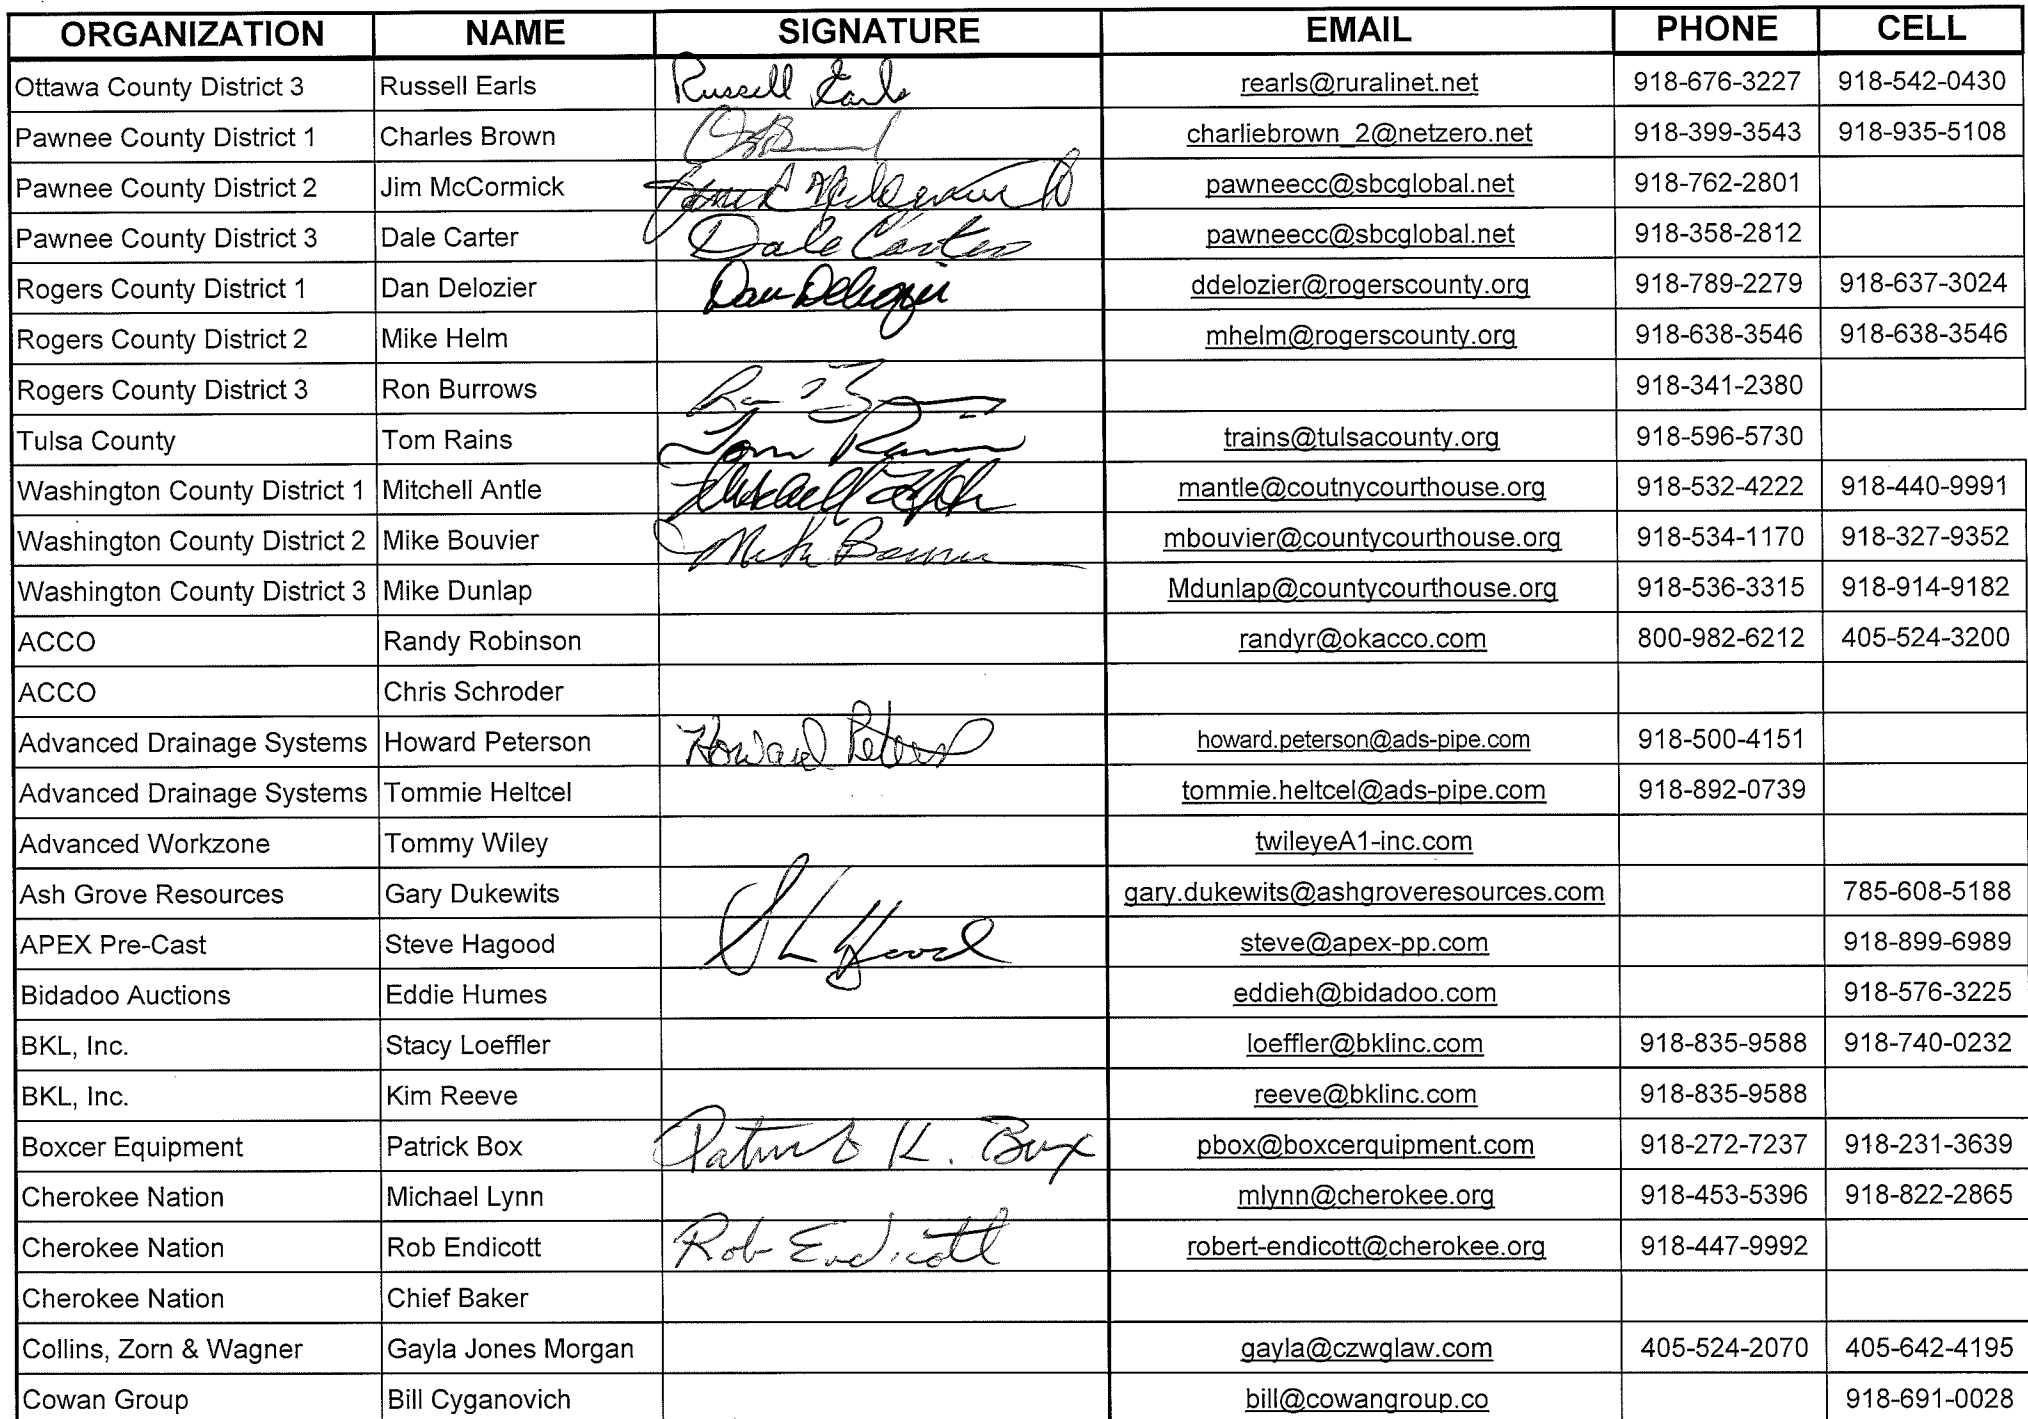 ORGANIZATION NAME SIGNATURE EMAIL PHONE CELL
Ottawa County District 3 Russell Earls Russell Earls rearls@ruralinet.net 918-676-3227 918-542-0430
Pawnee County District 1 Charles Brown charliebrown_2@netzero.net 918-399-3543 918-935-5108
Pawnee County District 2 Jim McCormick pawneecc@sbcglobal.net 918-762-2801
Pawnee County District 3 Dale Carter Dale Carter pawneecc@sbcglobal.net 918-358-2812
Rogers County District 1 Dan Delozier Dan Delozier ddelozier@rogerscounty.org 918-789-2279 918-637-3024
Rogers County District 2 Mike Helm mhelm@rogerscounty.org 918-638-3546 918-638-3546
Rogers County District 3 Ron Burrows 918-341-2380
Tulsa County Tom Rains Tom Rains trains@tulsacounty.org 918-596-5730
Washington County District 1 Mitchell Antle mantle@coutnycourthouse.org 918-532-4222 918-440-9991
Washington County District 2 Mike Bouvier mbouvier@countycourthouse.org 918-534-1170 918-327-9352
Washington County District 3 Mike Dunlap Mdunlap@countycourthouse.org 918-536-3315 918-914-9182
ACCO Randy Robinson randyr@okacco.com 800-982-6212 405-524-3200
ACCO Chris Schroder
Advanced Drainage Systems Howard Peterson Howard Peters howard.peterson@ads-pipe.com 918-500-4151
Advanced Drainage Systems Tommie Heltcel tommie.heltcel@ads-pipe.com 918-892-0739
Advanced Workzone Tommy Wiley twileyeA1-inc.com
Ash Grove Resources Gary Dukewits gary.dukewits@ashgroveresources.com 785-608-5188
APEX Pre-Cast Steve Hagood steve@apex-pp.com 918-899-6989
Bidadoo Auctions Eddie Humes eddieh@bidadoo.com 918-576-3225
BKL, Inc. Stacy Loeffler loeffler@bklinc.com 918-835-9588 918-740-0232
BKL, Inc. Kim Reeve reeve@bklinc.com 918-835-9588
Boxcer Equipment Patrick Box Patrick K. Box pbox@boxcerquipment.com 918-272-7237 918-231-3639
Cherokee Nation Michael Lynn mlynn@cherokee.org 918-453-5396 918-822-2865
Cherokee Nation Rob Endicott Rob Endicott robert-endicott@cherokee.org 918-447-9992
Cherokee Nation Chief Baker
Collins, Zorn & Wagner Gayla Jones Morgan gayla@czwglaw.com 405-524-2070 405-642-4195
Cowan Group Bill Cyganovich bill@cowangroup.co 918-691-0028